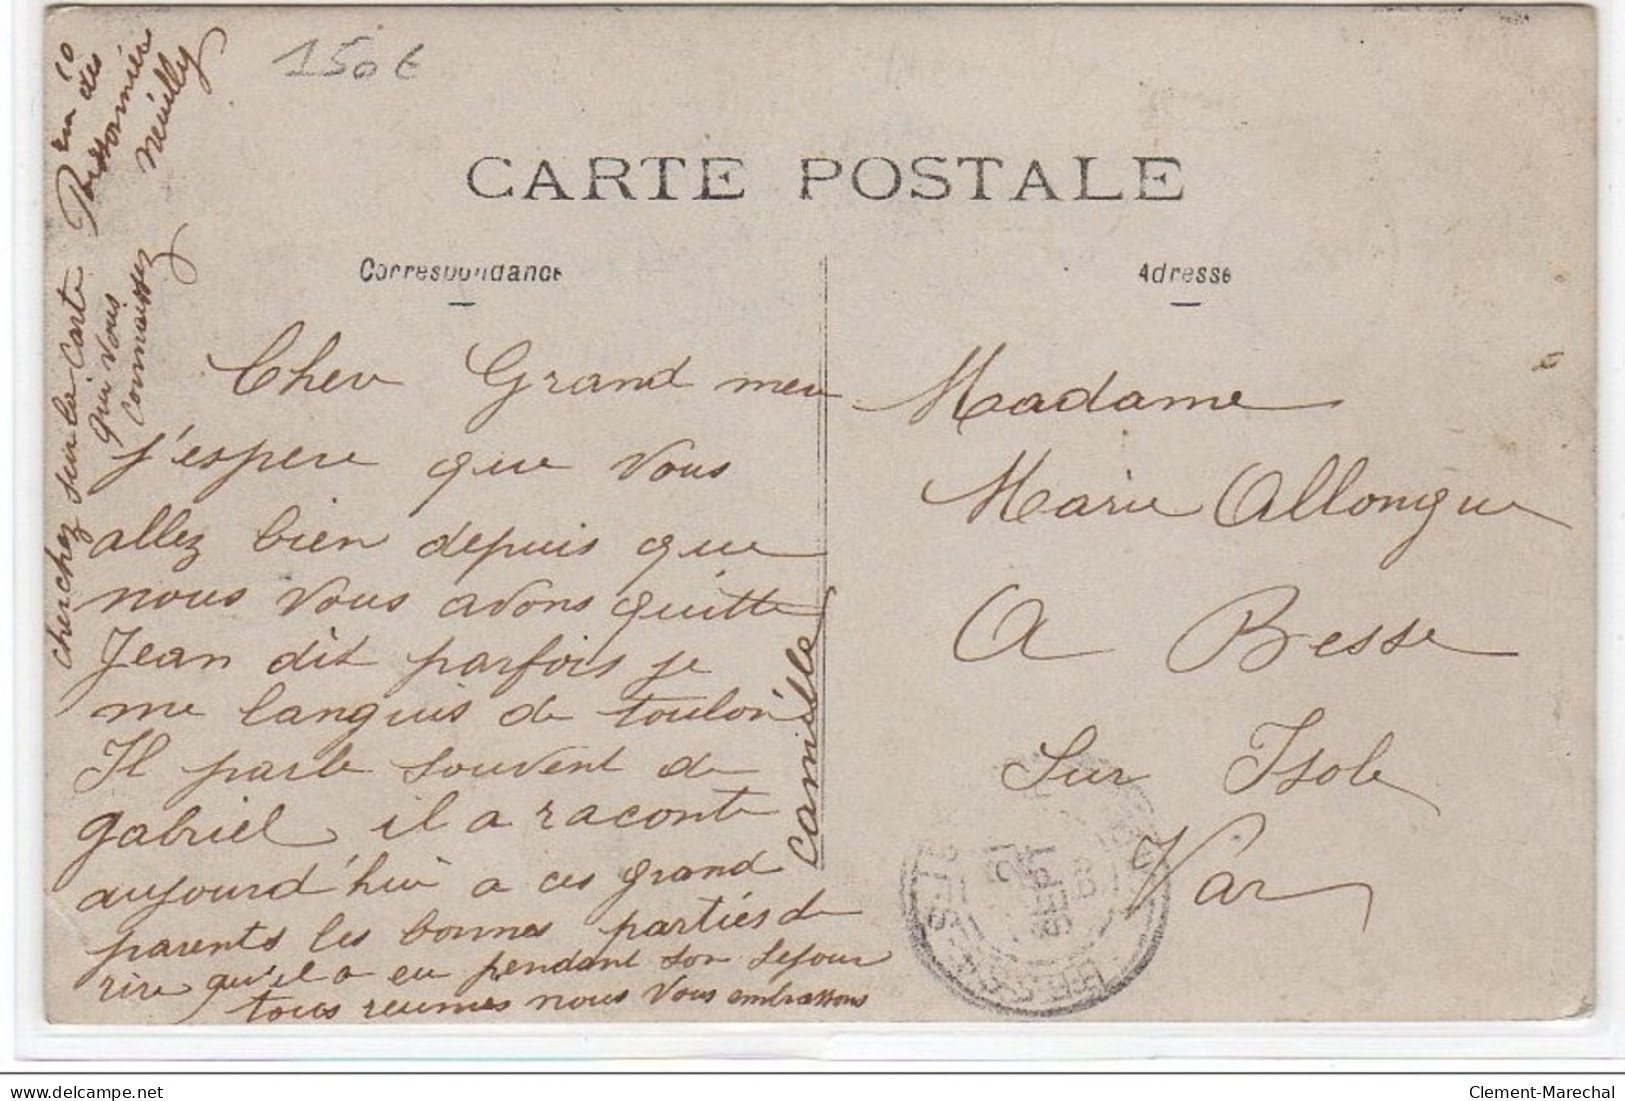 150€
CARTE POSTALE
Correspondance
Adresse
Cher Grand mere
j'espere que vous
allez bien depuis que
nous vous avons quitte
Jean dit parfois je
me languis de toulon
Il parle souvent de
gabriel il a raconte
aujourd'hui a ces grand
parents les bonnes parties de
rire qu'il a eu pendant son sejour
tous reunies nous vous embrassons
Camille
cherchez sur la carte
qui vous
connaissez
10
des
Poissonniers
Neuilly
Madame
Marie Allongue
A Besse
Sur Isole
Var
delcampe.net
Clement-Marechal